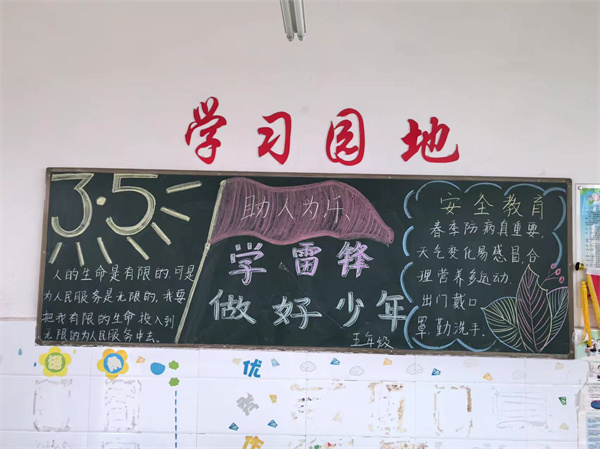 学习园地
3.5
人的生命是有限的,可是
为人民服务是无限的,我要
把我有限的生命投入到
无限的为人民服务中去。
助人为乐
学雷锋
做好少年
五年级
安全教育
春季防病真重要,
天气变化易感冒,合
理营养多运动,
出门戴口
罩勤洗手。
优